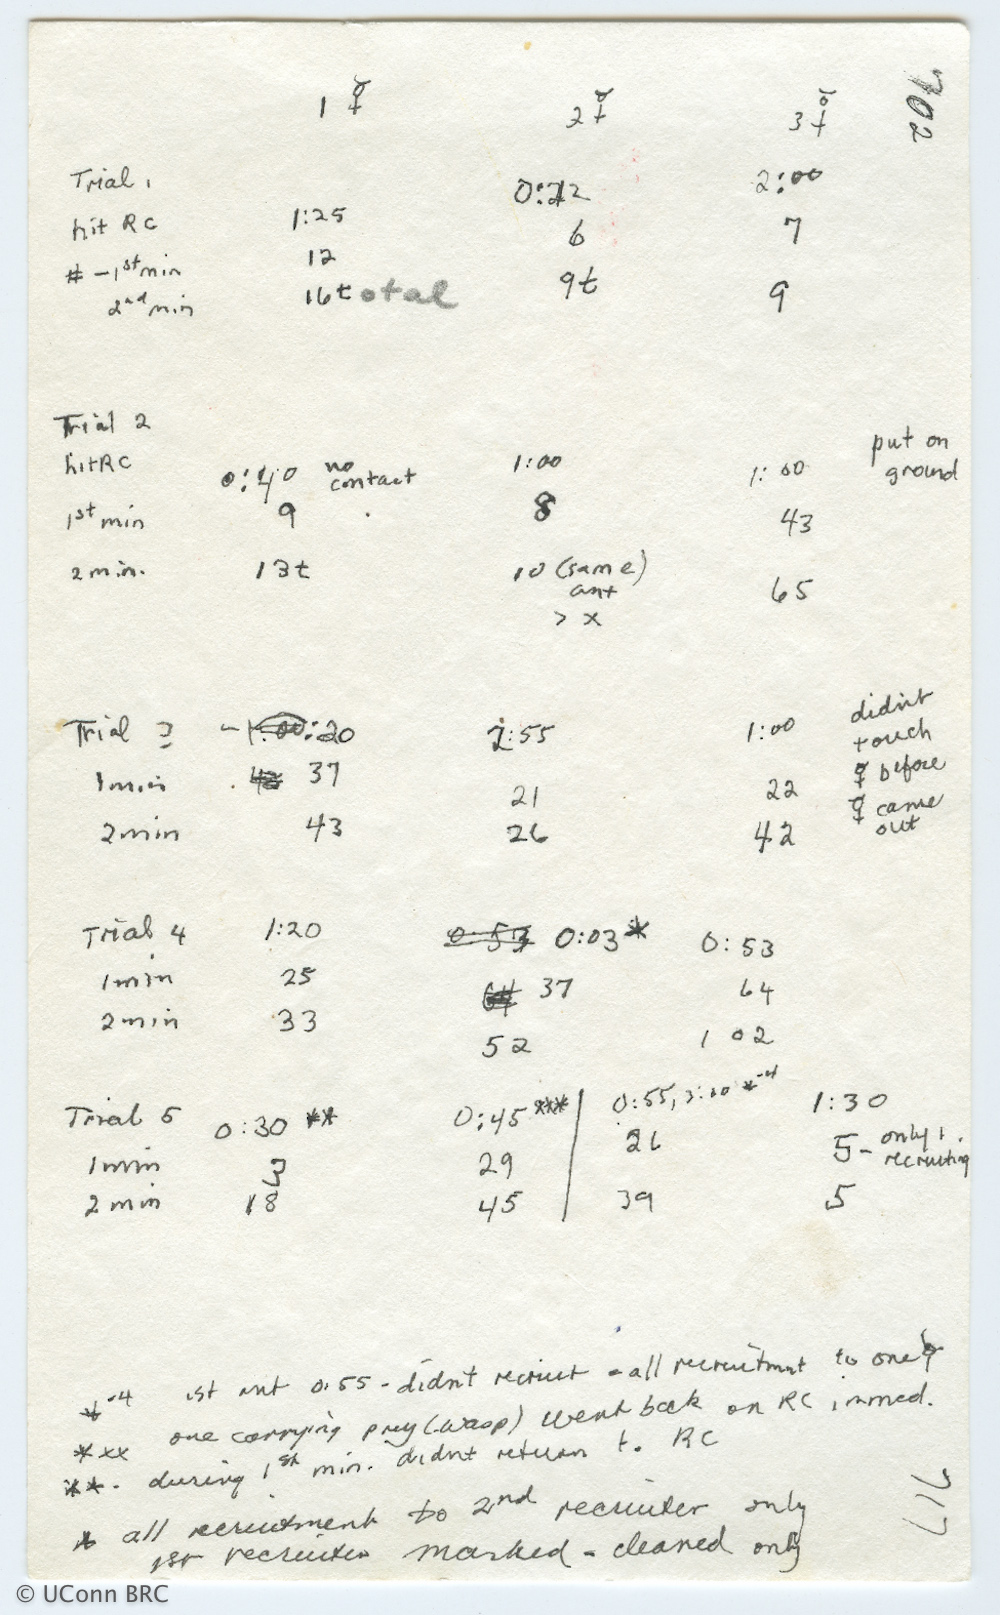 702
1 ☿ 2 ☿ 3 ☿
Trial 1
hit RC 1:25 0:22 2:00
# - 1st min 12 6 7
2nd min 16 total 9t 9
Trial 2
hit RC 0:40 no contact 1:00 1:00 put on ground
1st min 9 8 43
2 min. 13t 10 (same) ant 65
> x
Trial 3 :20 2:55 1:00 didn't touch ☿ before ☿ came out
1 min 37 21 22
2 min 43 26 42
Trial 4 1:20 0:53 0:03* 0:53
1 min 25 64 37 64
2 min 33 52 102
Trial 5 0:30 ** 0:45 *** 0:55, 3:10 *-4 1:30
1 min 3 29 26 5 - only 1 recruiting
2 min 18 45 39 5
*-4 1st ant 0:55 - didn't recruit - all recruitment to one ☿
*xx one carrying prey (wasp) went back on RC immed.
**. during 1st min. didn't return to RC
* all recruitment to 2nd recruiter only
1st recruiter marked - cleaned only
717
© UConn BRC